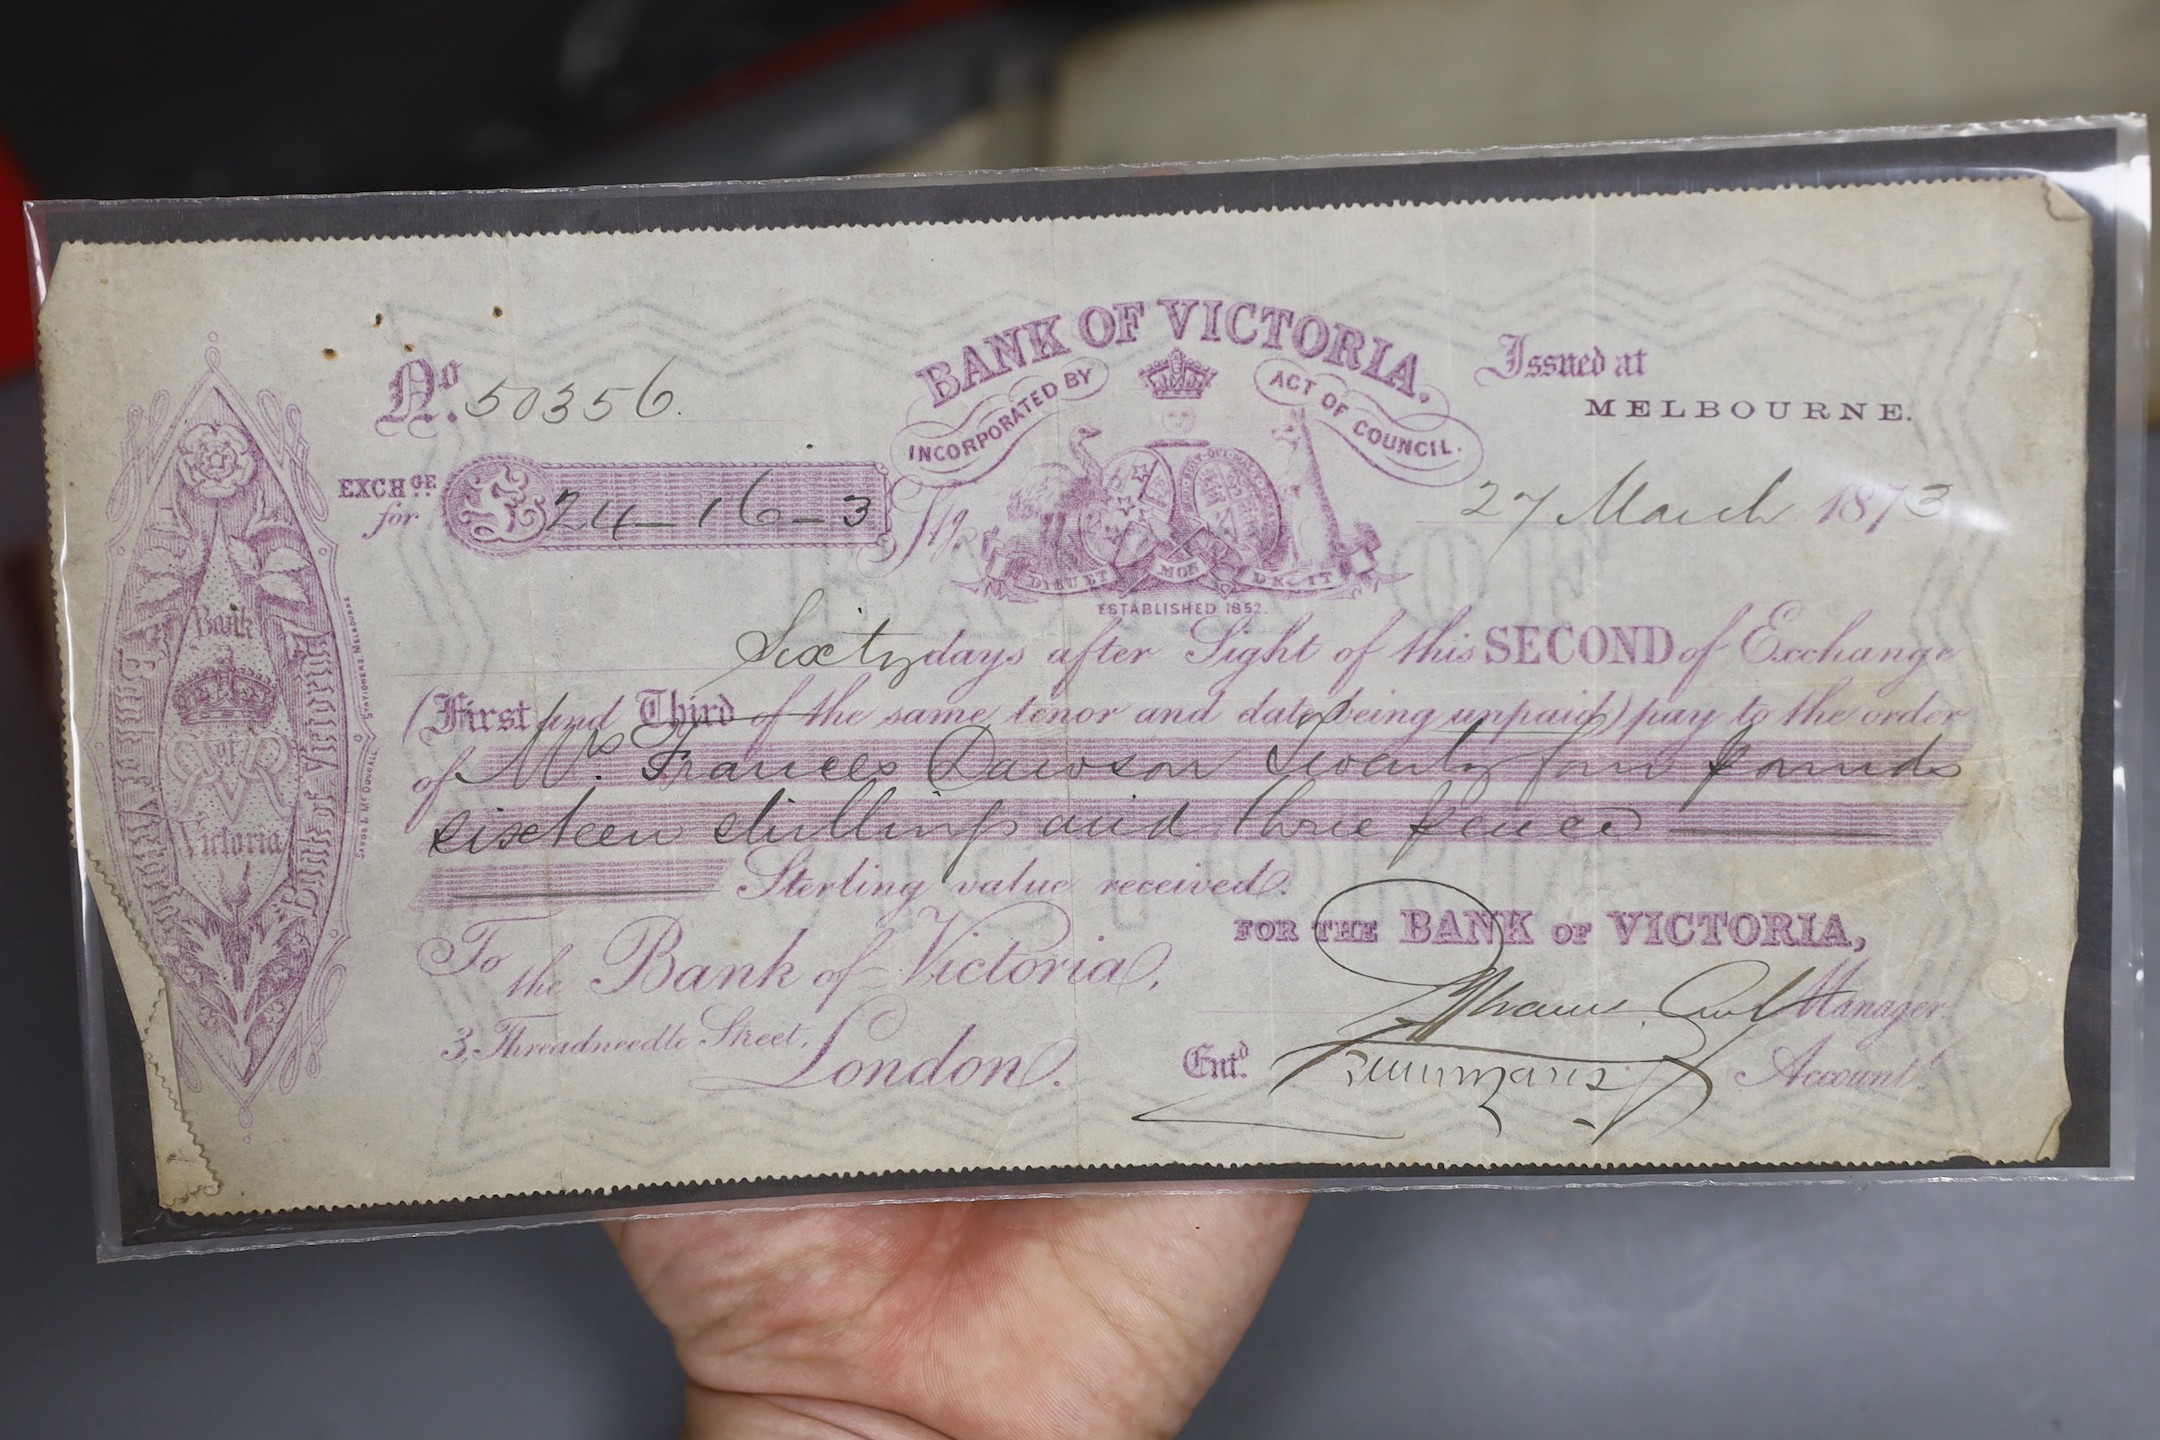 BANK OF VICTORIA.
INCORPORATED BY ACT OF COUNCIL.
Issued at
MELBOURNE.
No. 50356.
EXCHGE for £ 24-16-3 Stg.
27 March 1873
DIEU ET MON DROIT
ESTABLISHED 1852.
Sixty days after Sight of this SECOND of Exchange
(First and Third of the same tenor and date being unpaid) pay to the order
of Mrs. Frances Dawson Twenty four pounds
sixteen shillings and three pence
Sterling value received.
To the Bank of Victoria,
3, Threadneedle Street,
London.
FOR THE BANK OF VICTORIA,
Manager
Entd. Accountt.
Bank of Victoria
Bank of Victoria
Bank of Victoria
SANDS & McDOUGALL STATIONERS, MELBOURNE
BANK OF
VICTORIA